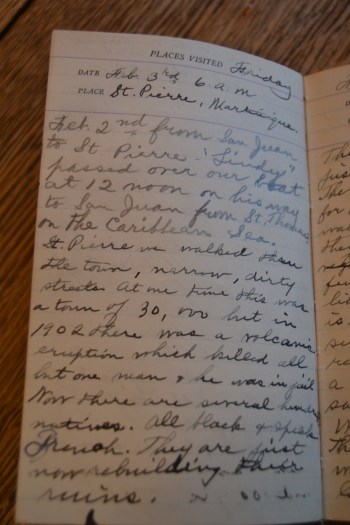 PLACES VISITED Friday
DATE Feb. 3rd, 6 a.m
PLACE St. Pierre, Martinique.
Feb. 2nd from San Juan
to St Pierre. "Lindy"
passed over our boat
at 12 noon on his way
to San Juan from St. Thomas
on the Caribbean Sea.
St. Pierre we walked thru
the town, narrow, dirty
streets. At one time this was
a town of 30,000 but in
1902 there was a volcanic
eruption which killed all
but one man & he was in jail
Now there are several hundred
natives. All black & speak
French. They are just
now rebuilding their
ruins.